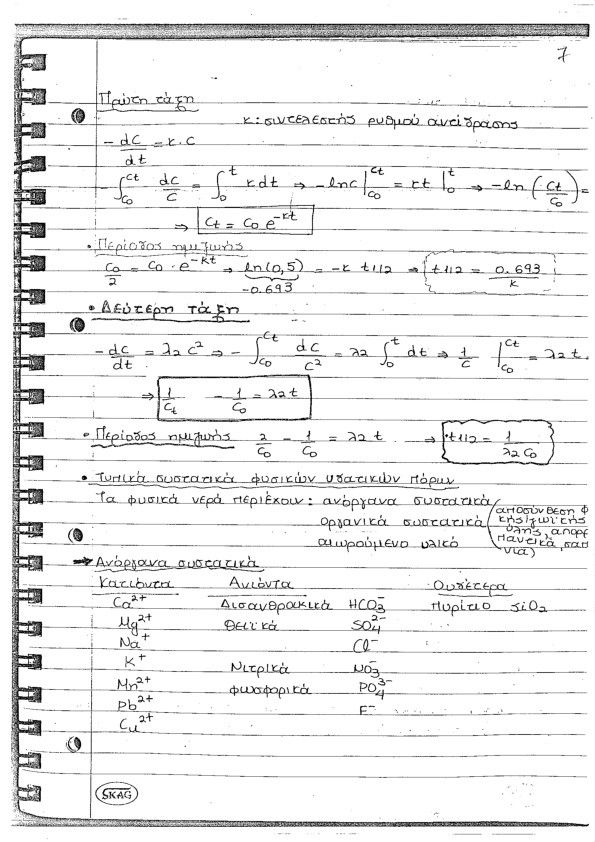 7
Πρώτη τάξη
κ: συντελεστής ρυθμού αντίδρασης
-dC/dt = κ.C
-∫_{C0}^{Ct} dC/C = ∫_0^t κdt → -lnC |_{C0}^{Ct} = κt |_0^t → -ln (Ct/C0) =
⇒ Ct = C0 e^{-κt}
• Περίοδος ημιζωής
C0/2 = C0 · e^{-κt} → ln(0,5) = -κ t1/2 → t1/2 = 0.693/κ
-0.693
• Δεύτερη τάξη
-dC/dt = λ2 C² → -∫_{C0}^{Ct} dC/C² = λ2 ∫_0^t dt → 1/C |_{C0}^{Ct} = λ2 t.
⇒ 1/Ct - 1/C0 = λ2t
• Περίοδος ημιζωής 2/C0 - 1/C0 = λ2 t → t1/2 = 1/(λ2 C0)
• Τυπικά συστατικά φυσικών υδατικών πόρων
Τα φυσικά νερά περιέχουν: ανόργανα συστατικά
οργανικά συστατικά (αποσύνθεση φ
κης/ζωικής
ύλης, απορρ
παντικά, σαπ
νια)
αιωρούμενο υλικό
→ Ανόργανα συστατικά
Κατιόντα Ανιόντα Ουδέτερα
Ca²⁺ Δισανθρακικά HCO₃⁻ Πυρίτιο SiO₂
Mg²⁺ Θειϊκά SO₄²⁻
Na⁺ Cl⁻
K⁺ Νιτρικά NO₃⁻
Mn²⁺ φωσφορικά PO₄³⁻
Pb²⁺ F⁻
Cu²⁺
SKAG